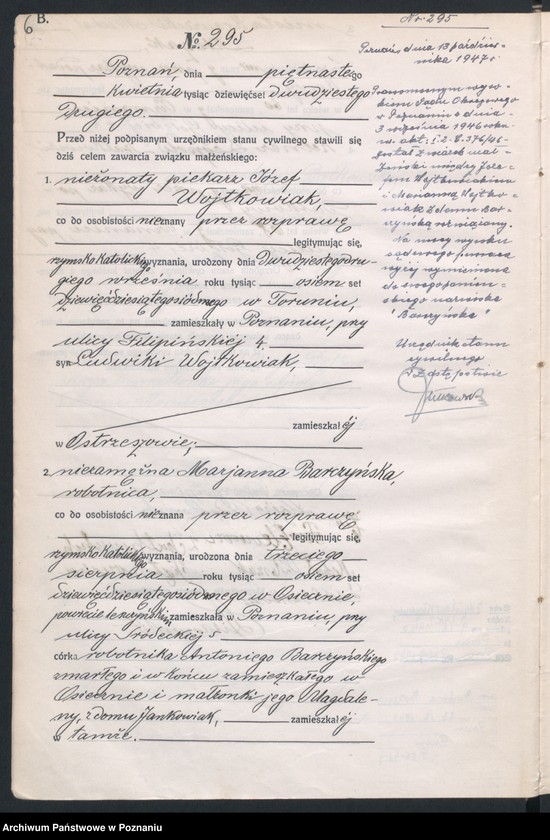 B.
6
№ 295
Poznań, dnia piętnastego
Kwietnia tysiąc dziewięćset Dwudziestego
Drugiego.
Przed niżej podpisanym urzędnikiem stanu cywilnego stawili się
dziś celem zawarcia związku małżeńskiego:
1. nieżonaty piekarz Józef
Wojtkowiak,
co do osobistości nieznany przez rozprawę
legitymując się,
rzymsko katolickiego wyznania, urodzony dnia Dwudziestegodru-
giego września roku tysiąc osiem set
dziewięćdziesiątegosiódmego w Toruniu,
zamieszkały w Poznaniu, przy
ulicy Filipińskiéj 4.
syn Ludwiki Wojtkowiak,
zamieszkałéj
w Ostrzeszowie;
2. niezamężna Marjanna Barczyńska,
robotnica,
co do osobistości nieznana przez rozprawę
legitymując się,
rzymsko katolickiego wyznania, urodzona dnia trzeciego
sierpnia roku tysiąc osiem set
dziewięćdziesiątegosiódmego w Osiecznie,
powiecie zamieszkała w Poznaniu, przy
ulicy Śródeckiéj 5
córka robotnika Antoniego Barczyńskiego
zmarłego i w końcu zamieszkałego w
Osiecznie i małżonki jego Magdale-
ny, z domu Jankowiak, zamieszkałéj
w tamże.
Nr. 295
Poznań, dnia 13 paździer-
nika 1947 r.
Prawomocnym wyro-
kiem Sądu Okręgowego
w Poznaniu z dnia
3 września 1946 roku
w. akt: I. 2. C. 376/46
został związek mał-
żeński między Józe-
fem Wojtkowiakiem
i Marianną Wojtko-
wiak z domu Bar-
czyńską rozwiązany.
Na mocy wyroku
sądowego powraca
wyżej wymieniona
do swego panień-
skiego nazwiska
"Barczyńska"
Urzędnik stanu
cywilnego
w zastępstwie
Archiwum Państwowe w Poznaniu